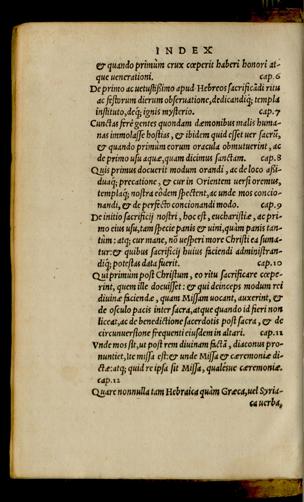 INDEX
& quando primùm crux cœperit haberi honori at-
que uenerationi. cap.6
De primo ac uetustißimo apud Hebreos sacrificãdi ritu
ac festorum dierum obseruatione, dedicandiq; templa
instituto, deq; ignis mysterio. cap.7
Cunctas ferè gentes quondam dæmonibus malis huma-
nas immolasse hostias, & ibidem quid esset uer sacrũ,
& quando primùm eorum oracula obmutuerint, ac
de primo usu aquæ, quam dicimus sanctam. cap.8
Quis primus docuerit modum orandi, ac de loco aßi-
duaq; precatione, & cur in Orientem uersi oremus,
templaq; nostra eòdem spectent, ac unde mos concio-
nandi, & de perfecto concionandi modo. cap.9
De initio sacrificij nostri, hoc est, eucharistiæ, ac pri-
mo eius usu, tam specie panis & uini, quàm panis tan-
tùm: atq; cur mane, nõ uesperi more Christi ea suma-
tur: & quibus sacrificij huius faciendi administran-
diq; potestas data fuerit. cap.10
Qui primùm post Christum, eo ritu sacrificare cœpe-
rint, quem ille docuisset: & qui deinceps modum rei
diuinæ faciendæ, quam Missam uocant, auxerint, &
de osculo pacis inter sacra, atque quando id fieri non
liceat, ac de benedictione sacerdotis post sacra, & de
circunuersione frequenti eiusdem in altari. cap.11
Vnde mos sit, ut post rem diuinam factã, diaconus pro-
nuntiet, Ite missa est: & unde Missa & cæremoniæ di-
ctæ: atq; quid re ipsa sit Missa, qualesue cæremoniæ.
cap.12
Quare nonnulla tam Hebraica quàm Græca, uel Syria-
ca uerba,